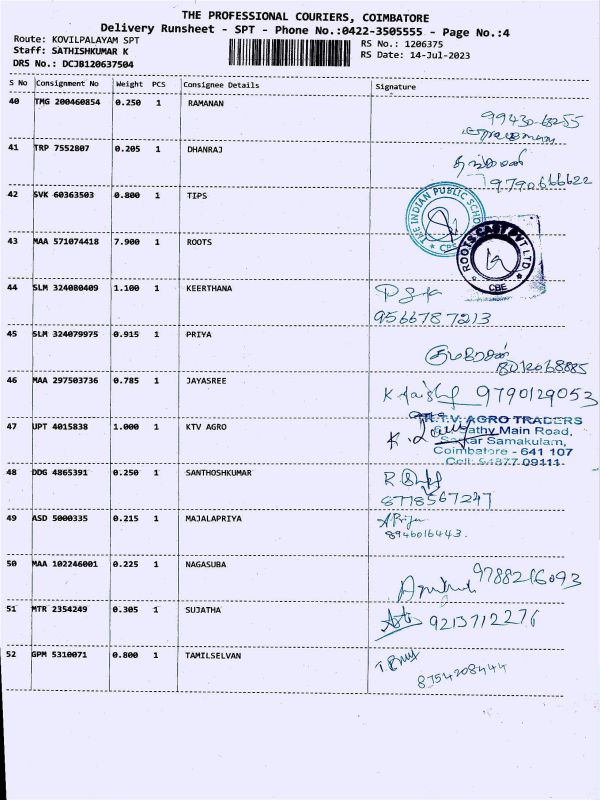 THE PROFESSIONAL COURIERS, COIMBATORE
Delivery Runsheet - SPT - Phone No.:0422-3505555 - Page No.:4
Route: KOVILPALAYAM SPT
Staff: SATHISHKUMAR K
DRS No.: DCJB120637504
RS No.: 1206375
RS Date: 14-Jul-2023
S No Consignment No Weight PCS Consignee Details Signature
40 TMG 200460854 0.250 1 RAMANAN
99430-68255
41 TRP 7552807 0.205 1 DHANRAJ
9790666622
42 SVK 60363503 0.800 1 TIPS
THE INDIAN PUBLIC SCHOOL
CBE
43 MAA 571074418 7.900 1 ROOTS
ROOTS CAST PVT LTD.
CBE
44 SLM 324080409 1.100 1 KEERTHANA
9566787213
45 SLM 324079975 0.915 1 PRIYA
8012068885
46 MAA 297503736 0.785 1 JAYASREE
9790129053
47 UPT 4015838 1.000 1 KTV AGRO
K.T.V. AGRO TRADERS
Main Road,
Samakulam,
Coimbatore - 641 107
Cell: 09111
48 DDG 4865391 0.250 1 SANTHOSHKUMAR
8778567247
49 ASD 5000335 0.215 1 MAJALAPRIYA
A Priya
8946016443.
50 MAA 102246001 0.225 1 NAGASUBA
9788216093
51 MTR 2354249 0.305 1 SUJATHA
9213712276
52 GPM 5310071 0.800 1 TAMILSELVAN
8754208444